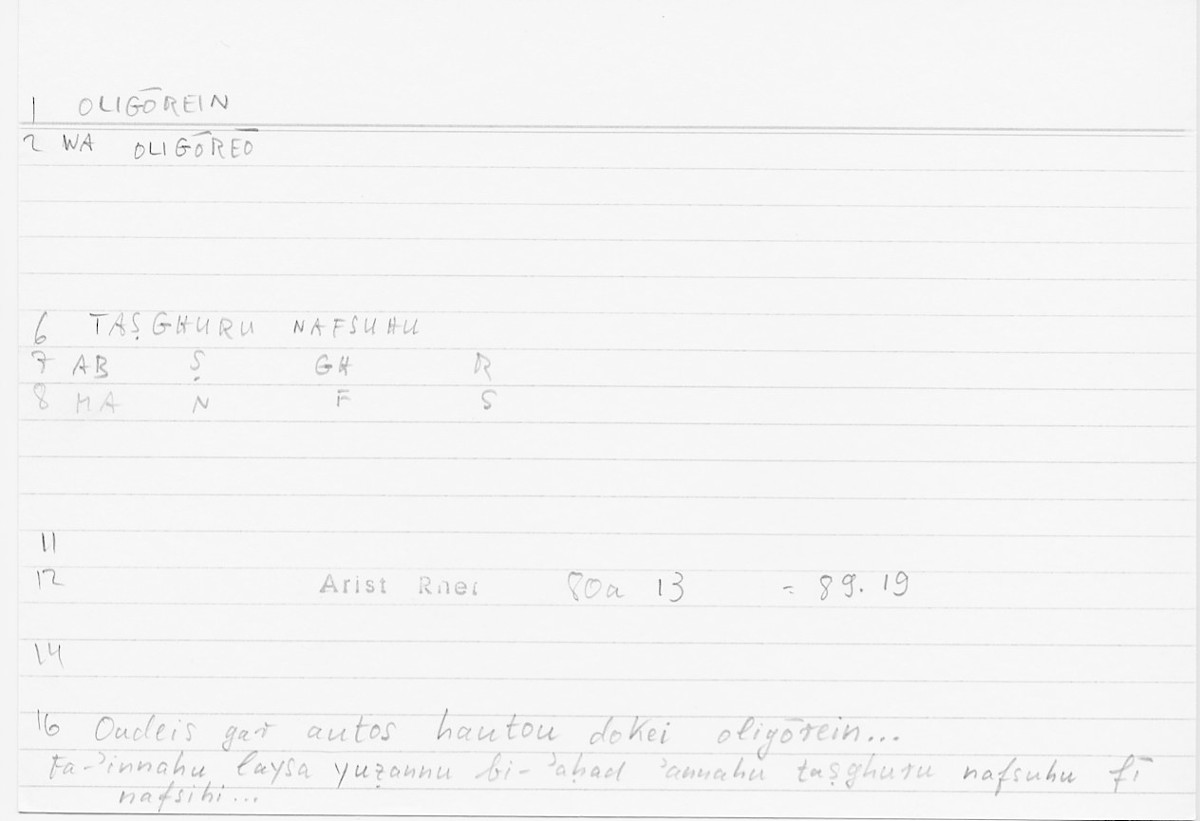 1 OLIGŌREIN
2 WA OLIGŌREŌ
6 TAṢGHURU NAFSUHU
7 AB Ṣ GH R
8 MA N F S
11
12 Arist Rhet 80a 13 = 89.19
14
16 Oudeis gar autos hautou dokei oligōrein...
fa-ʾinnahu laysa yuẓannu bi-ʾaḥad ʾannahu taṣghuru nafsuhu fī
nafsihi...